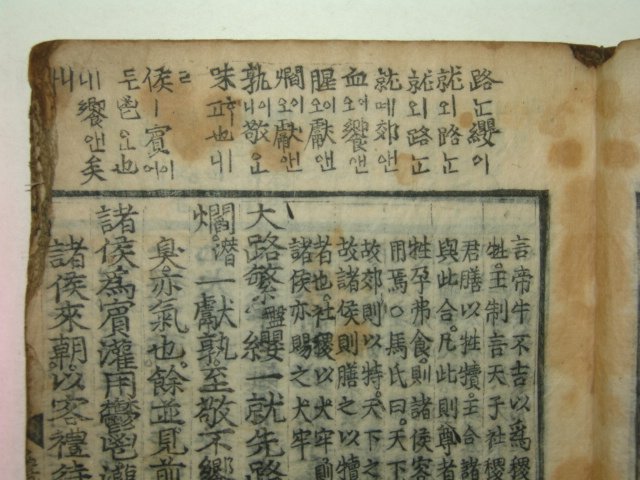 路노纓이
就외路노
就외路노
就떼郊앤
血이饗앤
腥이獻앤
爓오獻앤
孰이敬오
味고也니
侯ㅣ賓이
든鬯오也
내饗앤矣
言帝牛不吉以爲稷
牲王制言天子社稷
君膳以牲犢主合諸
與此合凡此則尊者
牲孕弗食則諸侯客
用焉○馬氏曰天下
故郊則以特天下之
故諸侯則膳之以犢
者也社稷以大牢則
諸侯亦賜之大牢
大路繁盤纓一就先路
爓潛一獻孰至敬不饗
臭亦氣也餘並見前
諸侯爲賓灌用鬱鬯灌
諸侯來朝以客禮待